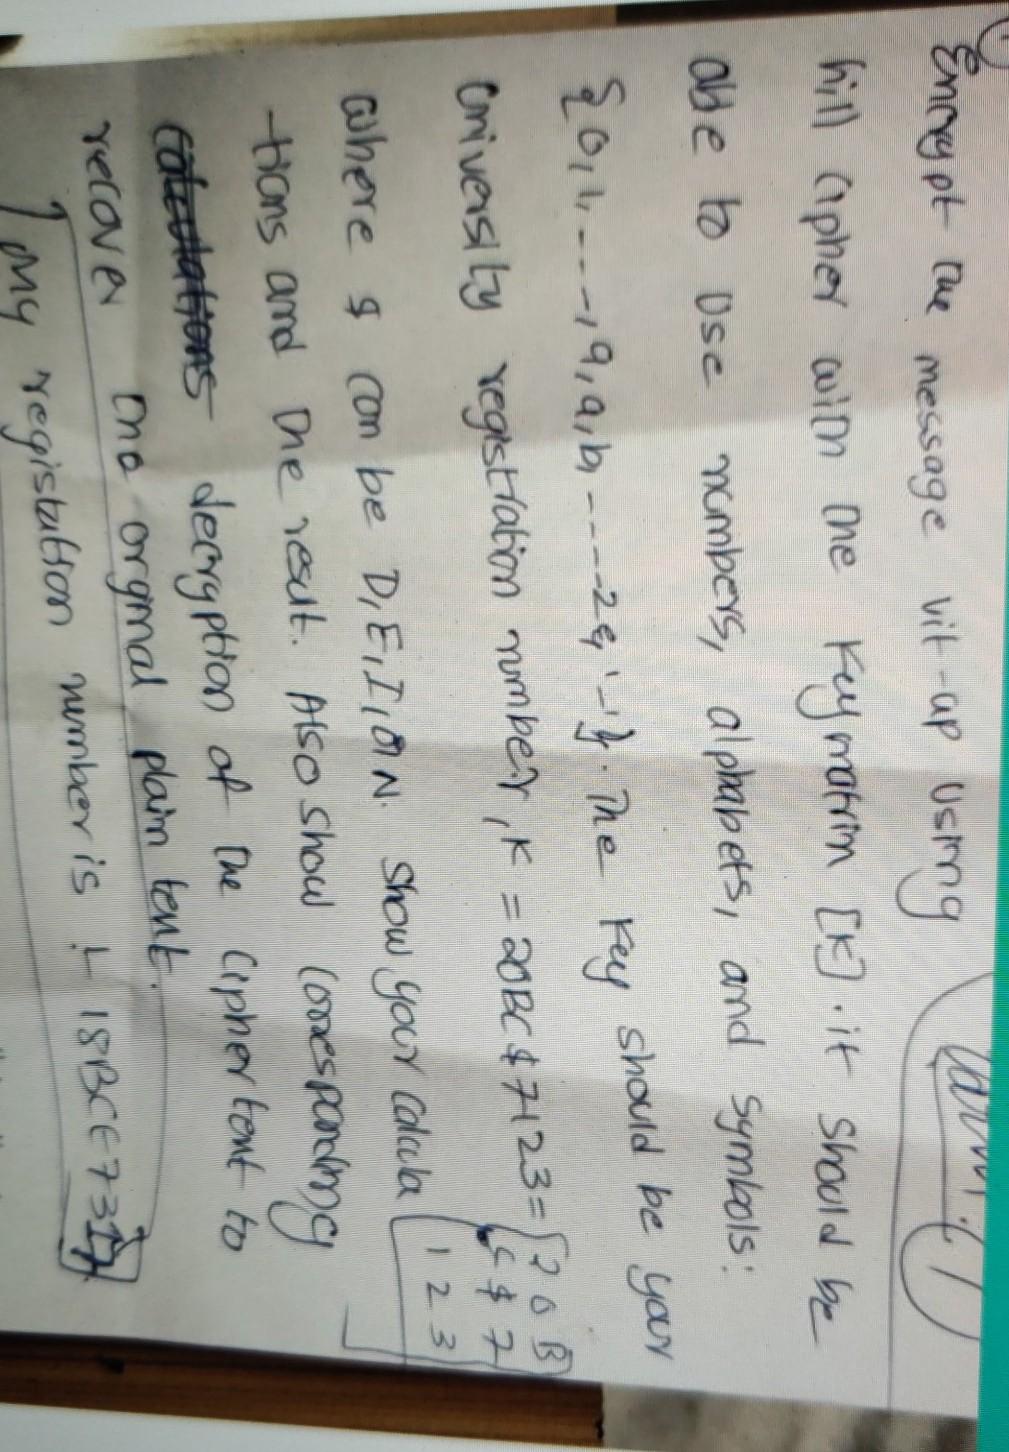 Encrypt the message vit-ap using
hill cipher with the key matrim [K]. it should be
abe to use numbers, alphabets, and symbols:
{0,1,----,9,a,b,----z, '-'}. The key should be your
university registration number, K = 20BC$7123 = [2 0 B
C $ 7
1 2 3]
where $ can be D,E,I,or N. show your calcula
-tions and the result. Also show corresponding
decryption of the ciphertent to
recover the orginal plain tent.
my registation number is :- 18BCE73